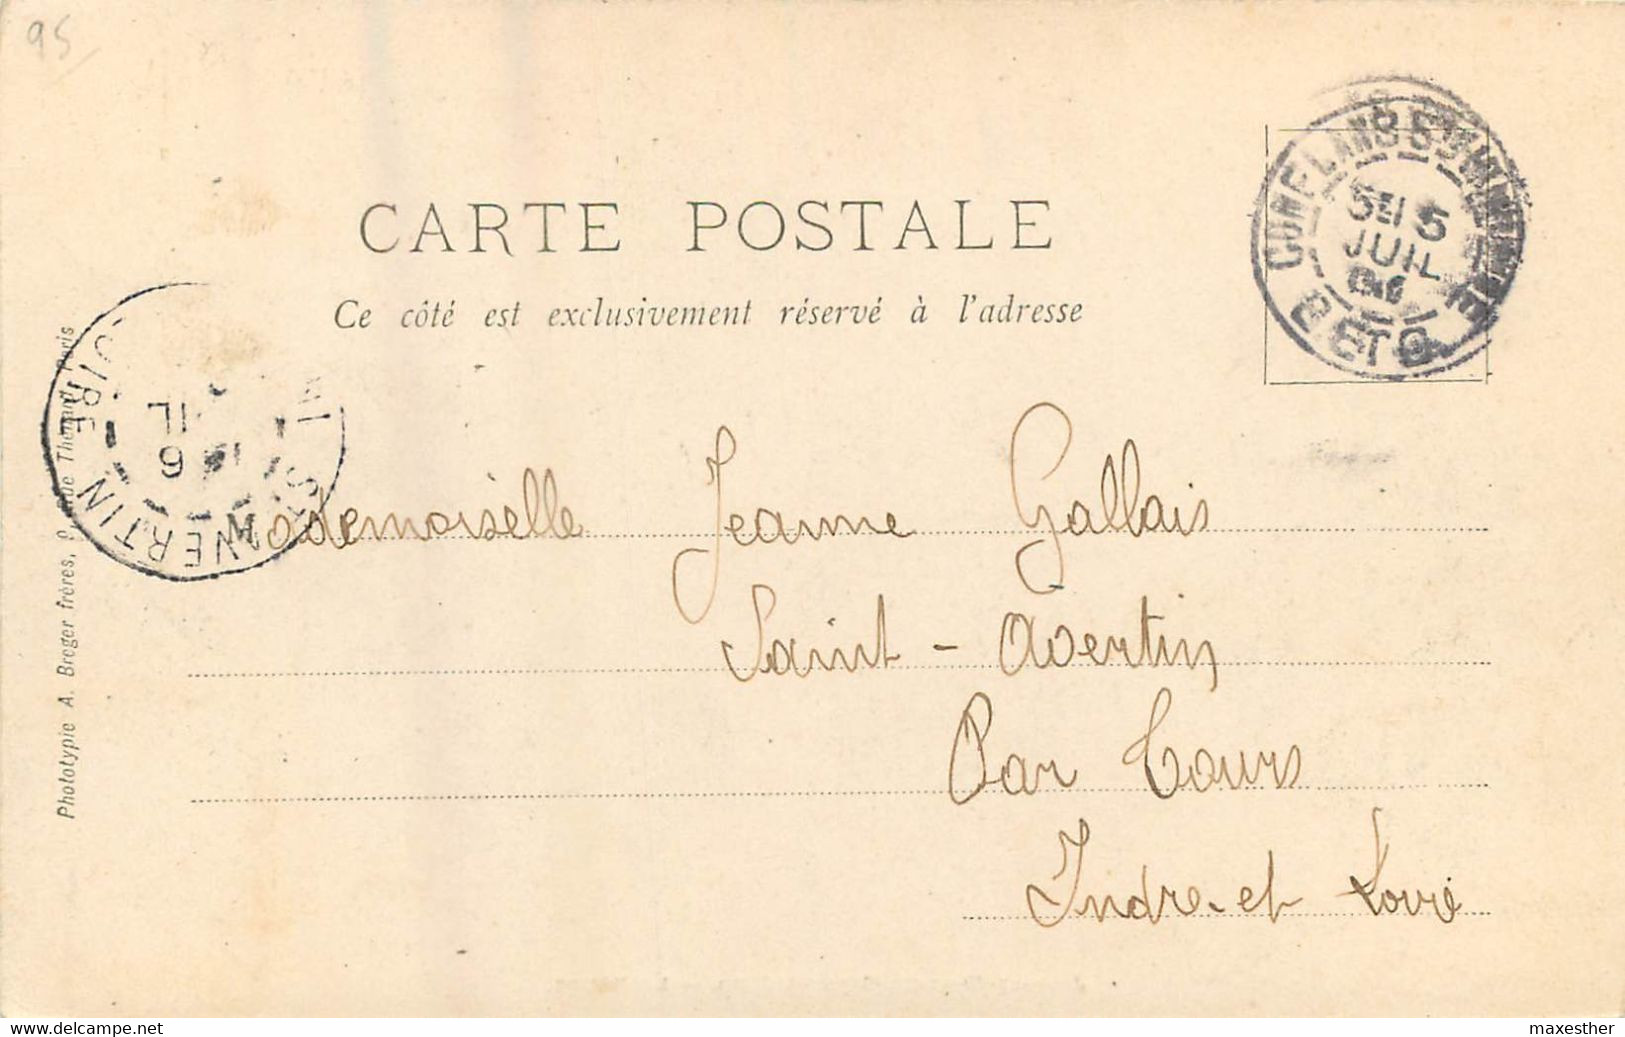 95
CARTE POSTALE
Ce côté est exclusivement réservé à l'adresse
CONFLANS
5
JUIL
S-ET-O
ST AVERTIN
6
Mademoiselle Jeanne Gallais
Saint-Avertin
Par Tours
Indre-et Loire
Phototypie A. Breger frères, 9, Rue Thénard, Paris
www.delcampe.net
maxesther